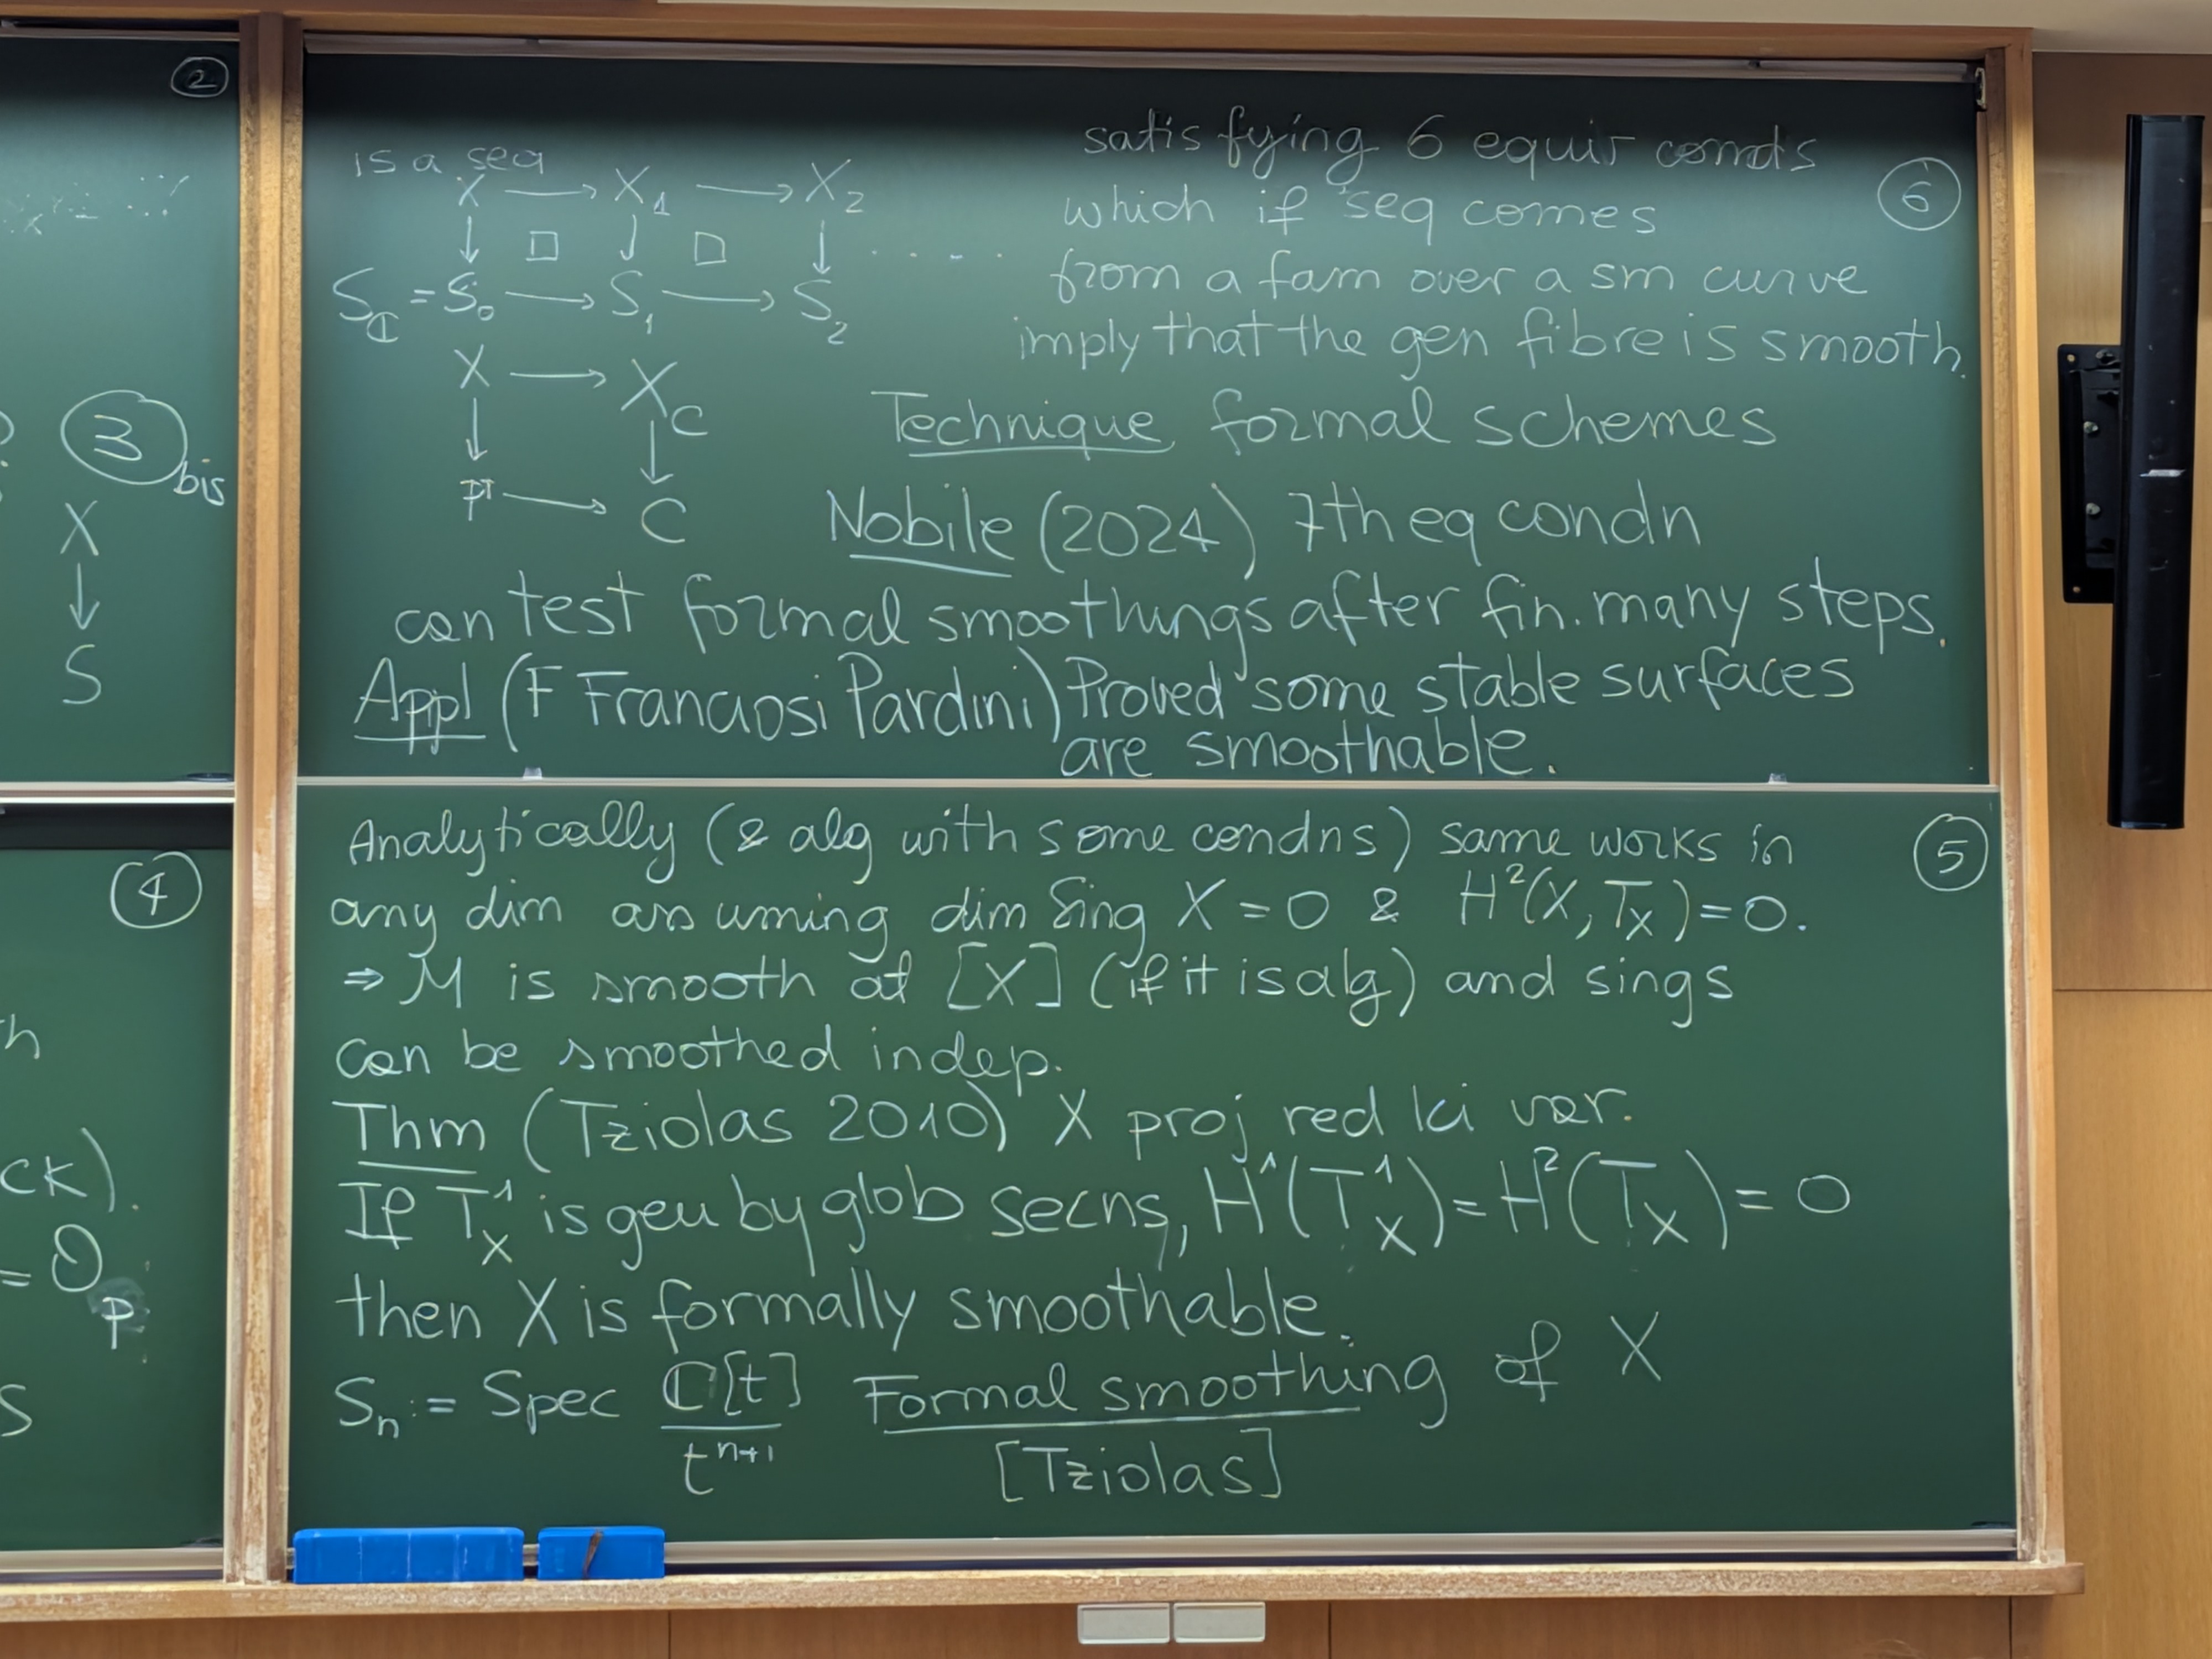 2
3 bis
X
↓
S
4
h
ck).
= O_p
S
is a seq
X → X_1 → X_2
↓ □ ↓ □ ↓ . . . .
S_ℂ = S_0 → S_1 → S_2
X → X_C
↓ ↓
pt → C
6
satisfying 6 equiv conds
which if seq comes
from a fam over a sm curve
imply that the gen fibre is smooth.
Technique formal schemes
Nobile (2024) 7th eq condn
can test formal smoothings after fin. many steps.
Appl (F Franciosi Pardini) Proved some stable surfaces
are smoothable.
5
Analytically (& alg with some condns) same works in
any dim assuming dim Sing X = 0 & H^2(X, T_X) = 0.
⇒ M is smooth at [X] (if it is alg) and sings
can be smoothed indep.
Thm (Tziolas 2010) X proj red lci var.
If T^1_X is gen by glob secns, H^1(T^1_X) = H^2(T_X) = 0
then X is formally smoothable.
S_n := Spec ℂ[t]/t^{n+1} Formal smoothing of X
[Tziolas]